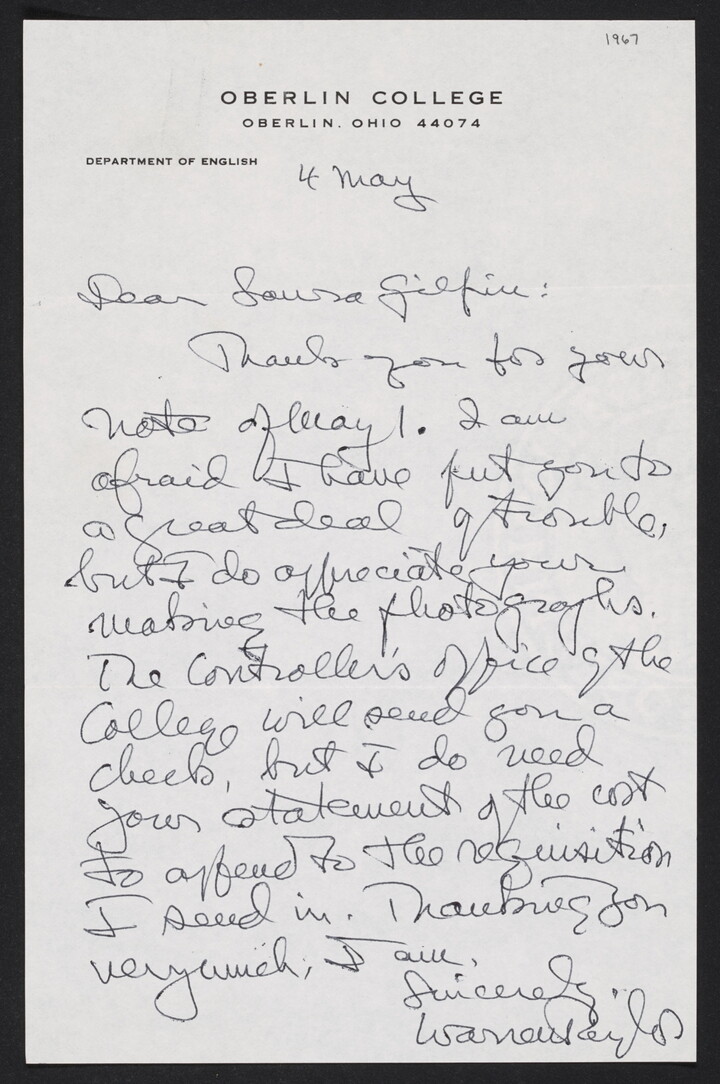 1967
OBERLIN COLLEGE
OBERLIN, OHIO 44074
DEPARTMENT OF ENGLISH
4 May
Dear Laura Gilpin:
Thank you for your
note of May 1. I am
afraid I have put you to
a great deal of trouble,
but I do appreciate your
making the photographs.
The Controller's office of the
College will send you a
check, but I do need
your statement of the cost
to append to the requisition
I send in. Thanking you
very much, I am,
Sincerely,
Warren Taylor